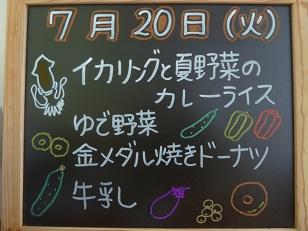 7月20日(火)
イカリングと夏野菜の
カレーライス
ゆで野菜
金メダル焼きドーナツ
牛乳し